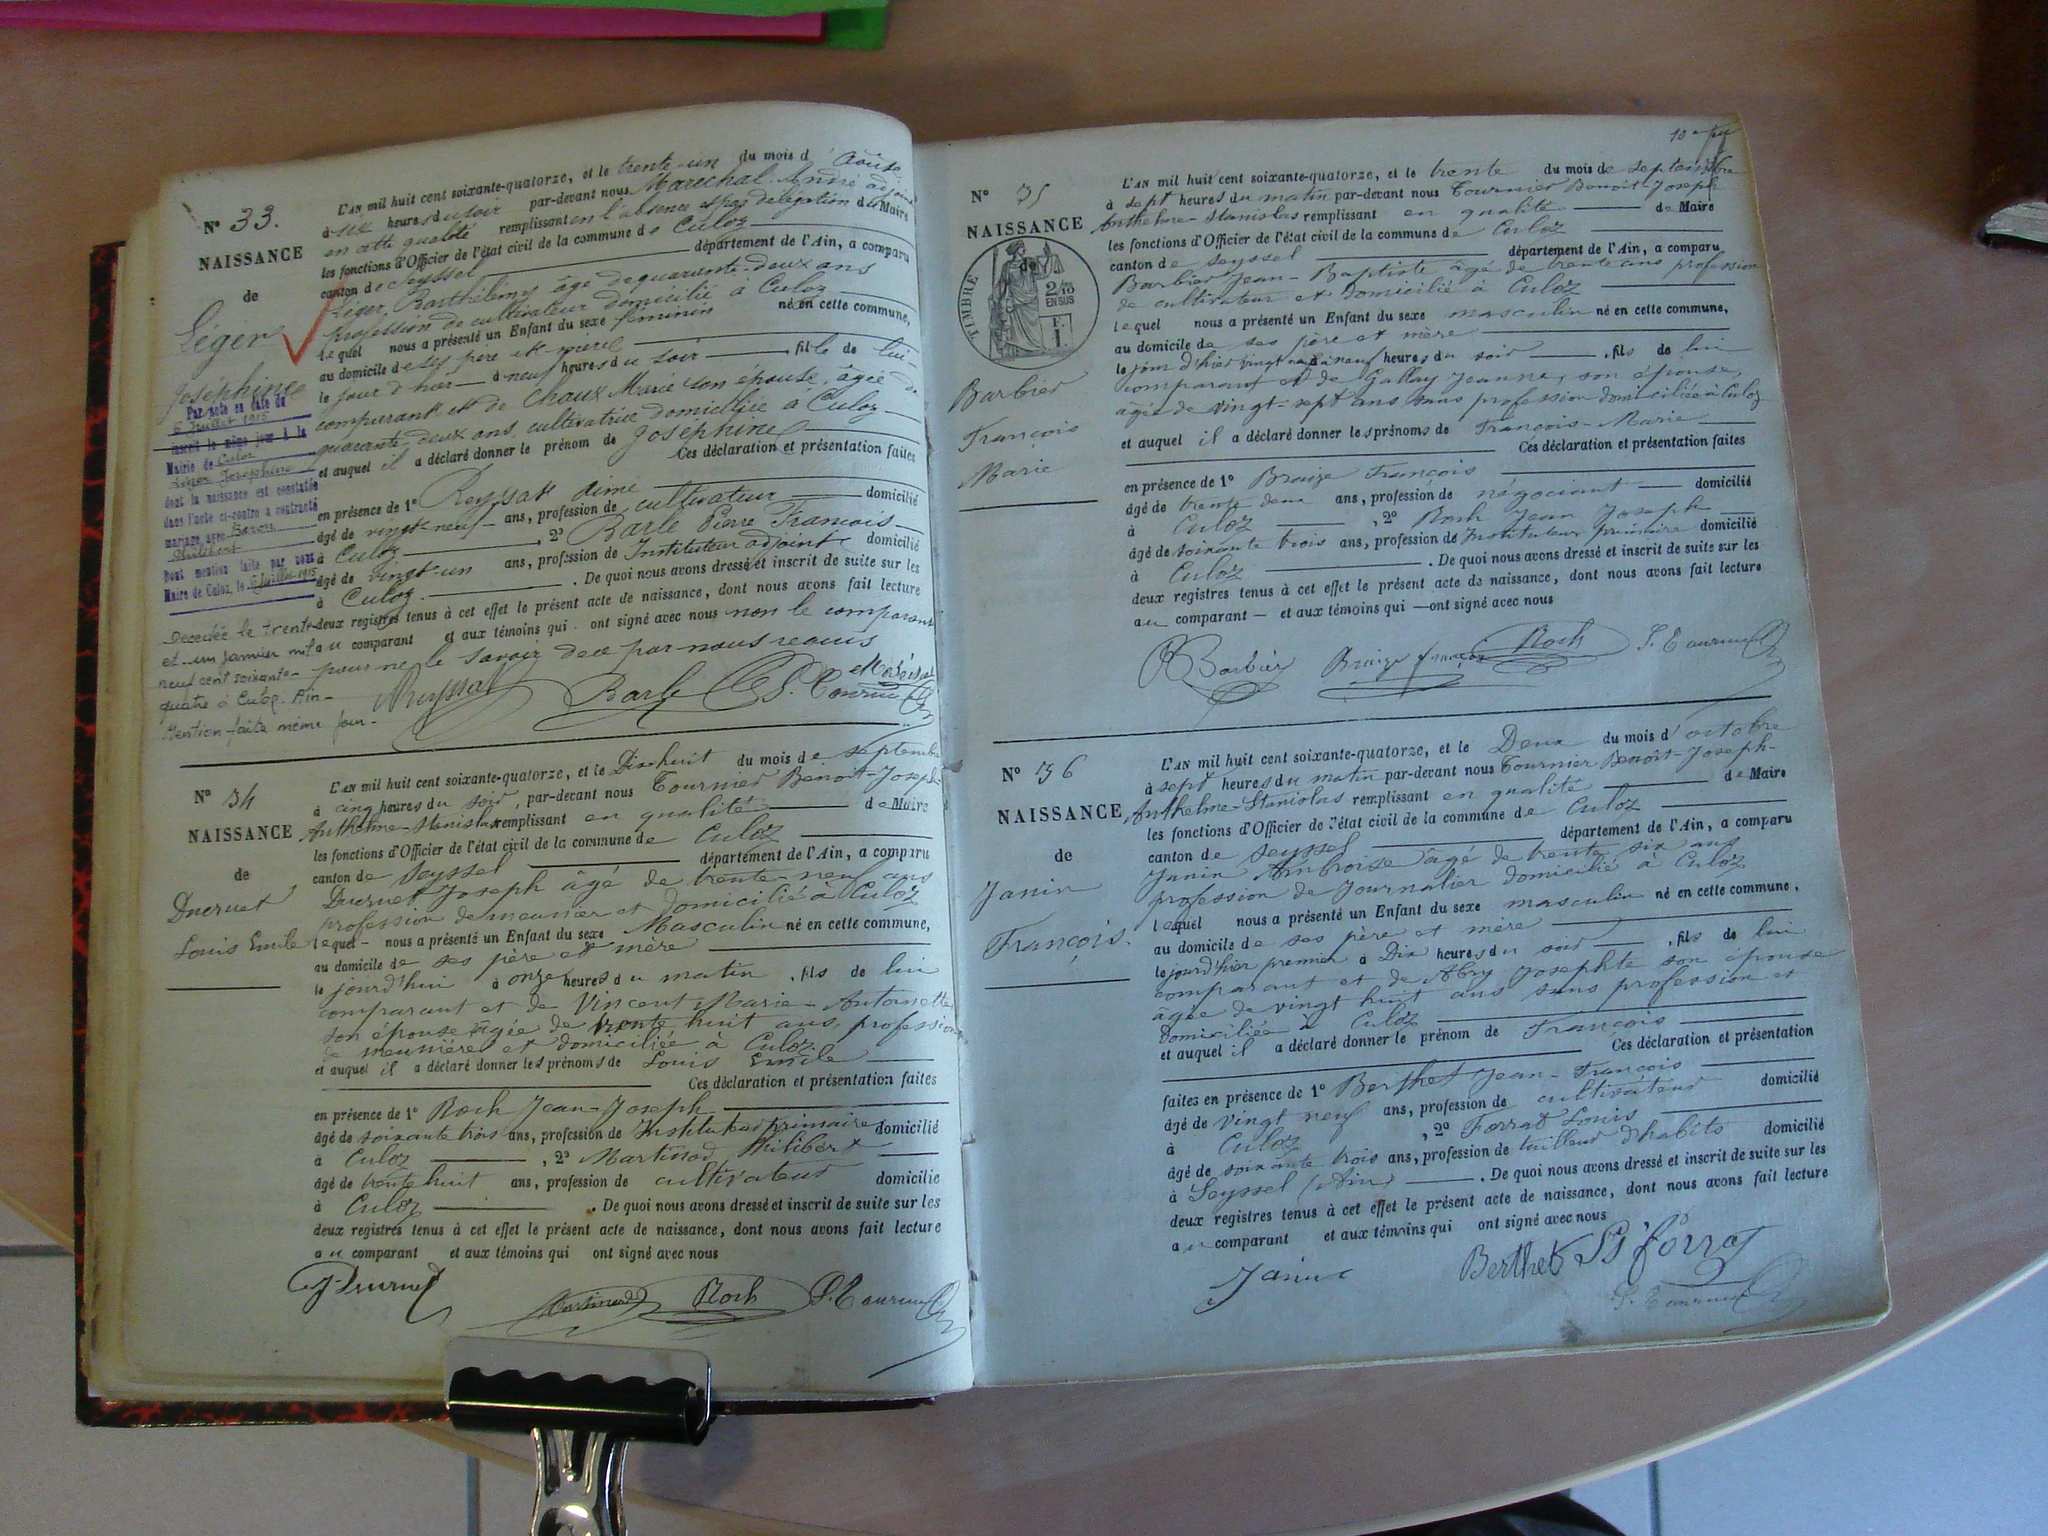 N° 33.
NAISSANCE
de
Léger
Joséphine
Par acte en date du
6 Juillet 1915
inscrit le même jour à la
Mairie de Culoz
Léger Joséphine
dont la naissance est constatée
dans l'acte ci-contre a contracté
mariage avec
Philibert
Dont mention faite par nous
Maire de Culoz, le 6 Juillet 1915
Décédée le trente
et un janvier mil
neuf cent soixante-
quatre à Culoz. Ain-
Mention faite même jour-
L'AN mil huit cent soixante-quatorze, et le trente-un du mois d'Août
à six heures du soir par-devant nous Maréchal André adjoint
en cette qualité remplissant en l'absence et par délégation du Maire
les fonctions d'Officier de l'état civil de la commune de Culoz
canton de Seyssel département de l'Ain, a comparu
Léger, Barthélémy âgé de quarante-deux ans
profession de cultivateur domicilié à Culoz
lequel nous a présenté un Enfant du sexe féminin né en cette commune,
au domicile de ses père et mère
le jour d'hier à neuf heures du soir, fille de lui
comparant et de Chaux Marie son épouse, âgée de
quarante deux ans, cultivatrice domiciliée à Culoz
et auquel il a déclaré donner le prénom de Joséphine
Ces déclaration et présentation faites
en présence de 1° Reyssat Aimé
âgé de vingt-neuf ans, profession de cultivateur domicilié
à Culoz, 2° Barle Pierre François
âgé de vingt-un ans, profession de Instituteur adjoint domicilié
à Culoz. De quoi nous avons dressé et inscrit de suite sur les
deux registres tenus à cet effet le présent acte de naissance, dont nous avons fait lecture
au comparant et aux témoins qui ont signé avec nous non le comparant
pour ne le savoir de ce par nous requis
Reyssat Barle
N° 34
NAISSANCE
de
Ducruet
Louis Emile
L'AN mil huit cent soixante-quatorze, et le Dix-huit du mois de septembre
à cinq heures du soir, par-devant nous Tournier Benoit-Joseph
Anthelme-Stanislas remplissant en qualité de Maire
les fonctions d'Officier de l'état civil de la commune de Culoz
canton de Seyssel département de l'Ain, a comparu
Ducruet Joseph âgé de trente-neuf ans
profession de meunier et domicilié à Culoz
lequel nous a présenté un Enfant du sexe Masculin né en cette commune,
au domicile de ses père et mère
le jourd'hui à onze heures du matin, fils de lui
comparant et de Vincent Marie-Antoinette
son épouse âgée de trente huit ans, profession
de meunière et domiciliée à Culoz
et auquel il a déclaré donner les prénoms de Louis Emile
Ces déclaration et présentation faites
en présence de 1° Roch Jean-Joseph
âgé de soixante trois ans, profession de Instituteur primaire domicilié
à Culoz, 2° Martinod Philibert
âgé de trente huit ans, profession de cultivateur domicilié
à Culoz. De quoi nous avons dressé et inscrit de suite sur les
deux registres tenus à cet effet le présent acte de naissance, dont nous avons fait lecture
au comparant et aux témoins qui ont signé avec nous
J Ducruet Martinod Roch
N° 35
NAISSANCE
TIMBRE
de
2/10
EN SUS
F.
1.
Barbier
François
Marie
L'AN mil huit cent soixante-quatorze, et le trente du mois de septembre
à sept heures du matin par-devant nous Tournier Benoit-Joseph
Anthelme-Stanislas remplissant en qualité de Maire
les fonctions d'Officier de l'état civil de la commune de Culoz
canton de Seyssel département de l'Ain, a comparu
Barbier Jean-Baptiste âgé de trente ans profession
de cultivateur et domicilié à Culoz
lequel nous a présenté un Enfant du sexe masculin né en cette commune,
au domicile de ses père et mère
le jour d'hier vingt neuf à neuf heures du soir, fils de lui
comparant et de Gallay Jeanne, son épouse,
âgée de vingt-sept ans sans profession domiciliée à Culoz
et auquel il a déclaré donner les prénoms de François-Marie
Ces déclaration et présentation faites
en présence de 1° Braize François
âgé de trente deux ans, profession de négociant domicilié
à Culoz, 2° Roch Jean Joseph
âgé de soixante trois ans, profession de Instituteur primaire domicilié
à Culoz. De quoi nous avons dressé et inscrit de suite sur les
deux registres tenus à cet effet le présent acte de naissance, dont nous avons fait lecture
au comparant et aux témoins qui ont signé avec nous
Barbier Braize françois Roch
N° 36
NAISSANCE
de
Janin
François.
L'AN mil huit cent soixante-quatorze, et le Deux du mois d'octobre
à sept heures du matin par-devant nous Tournier Benoît-Joseph-
Anthelme-Stanislas remplissant en qualité de Maire
les fonctions d'Officier de l'état civil de la commune de Culoz
canton de Seyssel département de l'Ain, a comparu
Janin Ambroise âgé de trente six ans
profession de Journalier domicilié à Culoz
lequel nous a présenté un Enfant du sexe masculin né en cette commune,
au domicile de ses père et mère
le jourd'hier premier à Dix heures du soir, fils de lui
comparant et de Abry Josephte son épouse
âgée de vingt huit ans sans profession et
Domiciliée à Culoz
et auquel il a déclaré donner le prénom de François
Ces déclaration et présentation
faites en présence de 1° Berthet Jean-François
âgé de vingt neuf ans, profession de cultivateur domicilié
à Culoz, 2° Forrat Louis
âgé de soixante trois ans, profession de tailleur d'habits domicilié
à Seyssel (Ain). De quoi nous avons dressé et inscrit de suite sur les
deux registres tenus à cet effet le présent acte de naissance, dont nous avons fait lecture
au comparant et aux témoins qui ont signé avec nous
Janin Berthet forrat